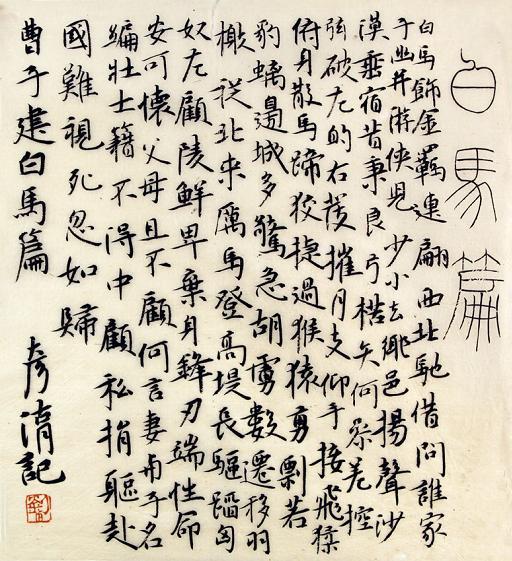 白馬篇
白馬飾金羈連翩西北馳借問誰家
子幽并游俠兒少小去鄉邑揚聲沙
漠垂宿昔秉良弓楛矢何參差控
弦破左的右發摧月支仰手接飛猱
俯身散馬蹄狡捷過猴猿勇剽若
豹螭邊城多驚急胡虜數遷移羽
檄從北來厲馬登高堤長驅蹈匈
奴左顧陵鮮卑棄身鋒刃端性命
安可懷父母且不顧何言妻與子名
編壯士籍不得中顧私捐軀赴
國難視死忽如歸
曹子建白馬篇 彥 記